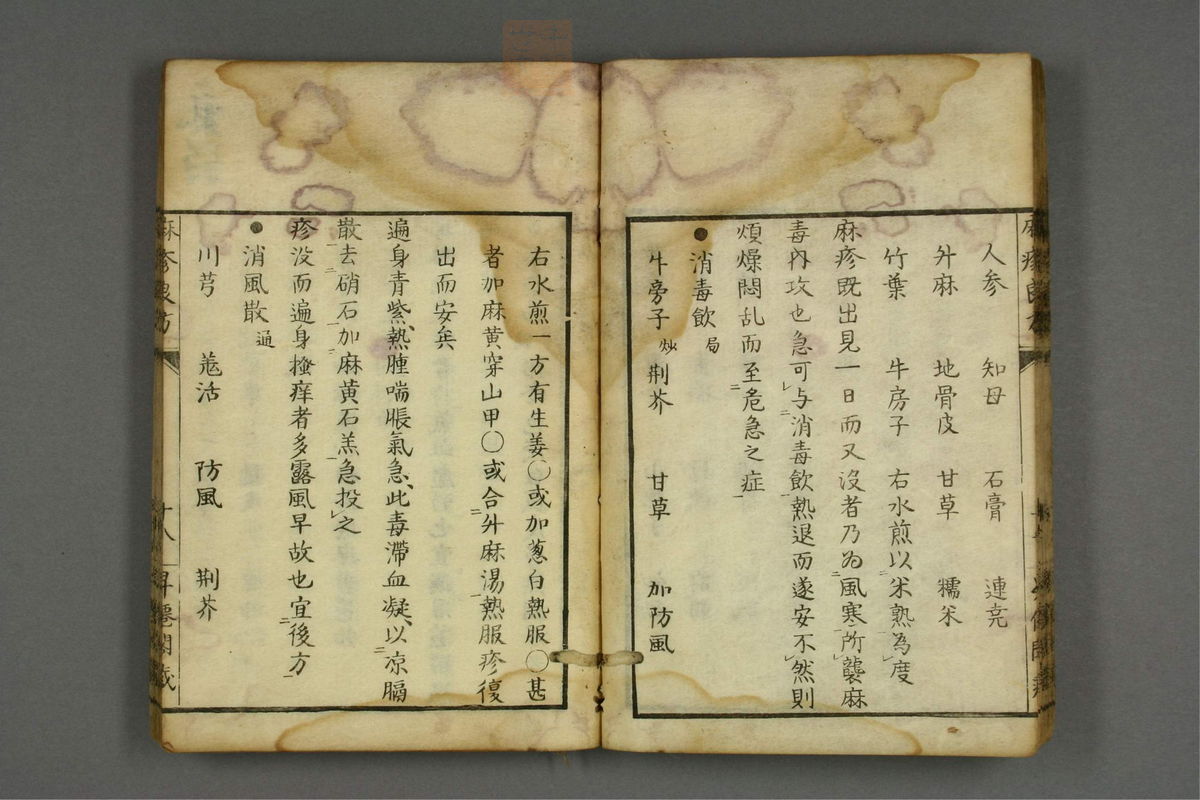 人参　知母　石膏　連壳
升麻　地骨皮　甘草　糯米
竹葉　牛房子　右水煎以米熟為度
麻疹既出見一日而又没者乃為風寒所襲麻
毒内攻也急可与消毒飲熱退而遂安不然則
煩燥悶乱而至危急之症
●消毒飲局
牛旁子炒　荆芥　甘草　加防風
右水煎一方有生姜〇或加葱白熟服〇甚
者加麻黄穿山甲〇或合升麻湯熱服疹復
出而安矣
遍身青紫熱腫喘脹氣急此毒滞血凝以凉膈
散去硝石加麻黄石羔急投之
疹没而遍身搔痒者多露風早故也宜後方
●消風散通
川芎　羗活　防風　荆芥